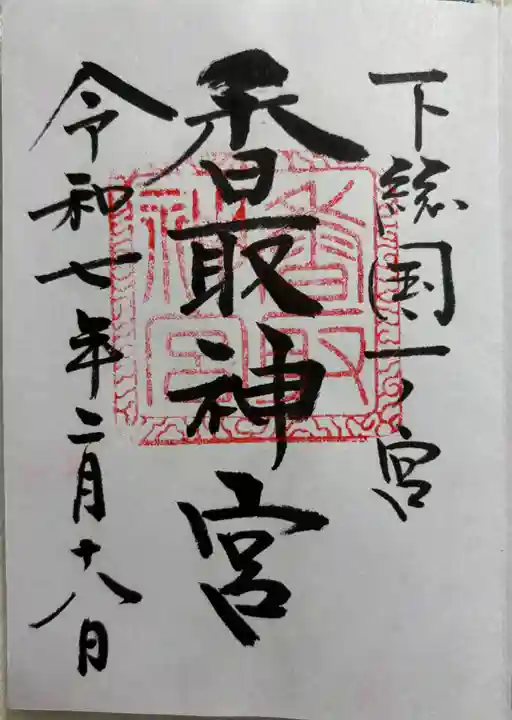 下総国一ノ宮
香取神宮
令和七年二月十八日
香取
神宮